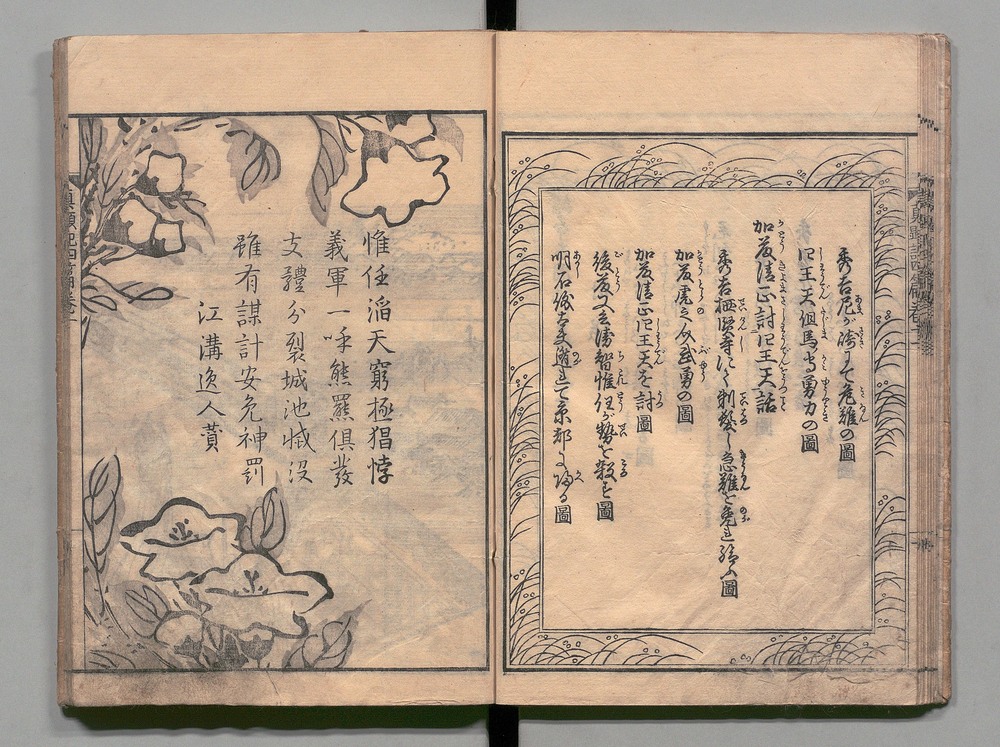 秀吉尼が崎にて危難の圖
四王天但馬守勇力の圖
加藤清正討四王天話
秀吉栖賢寺にて剃髪し急難を免れ給ふ圖
加藤虎之助武勇の圖
加藤清正四王天を討圖
後藤又兵衛智惟任が勢を殺す圖
明石儀太夫遁れて京都に帰る圖
惟任滔天窮極猖悖
義軍一呼熊羆俱發
支體分裂城池殱沒
雖有謀計安免神罰
江溝逸人賛